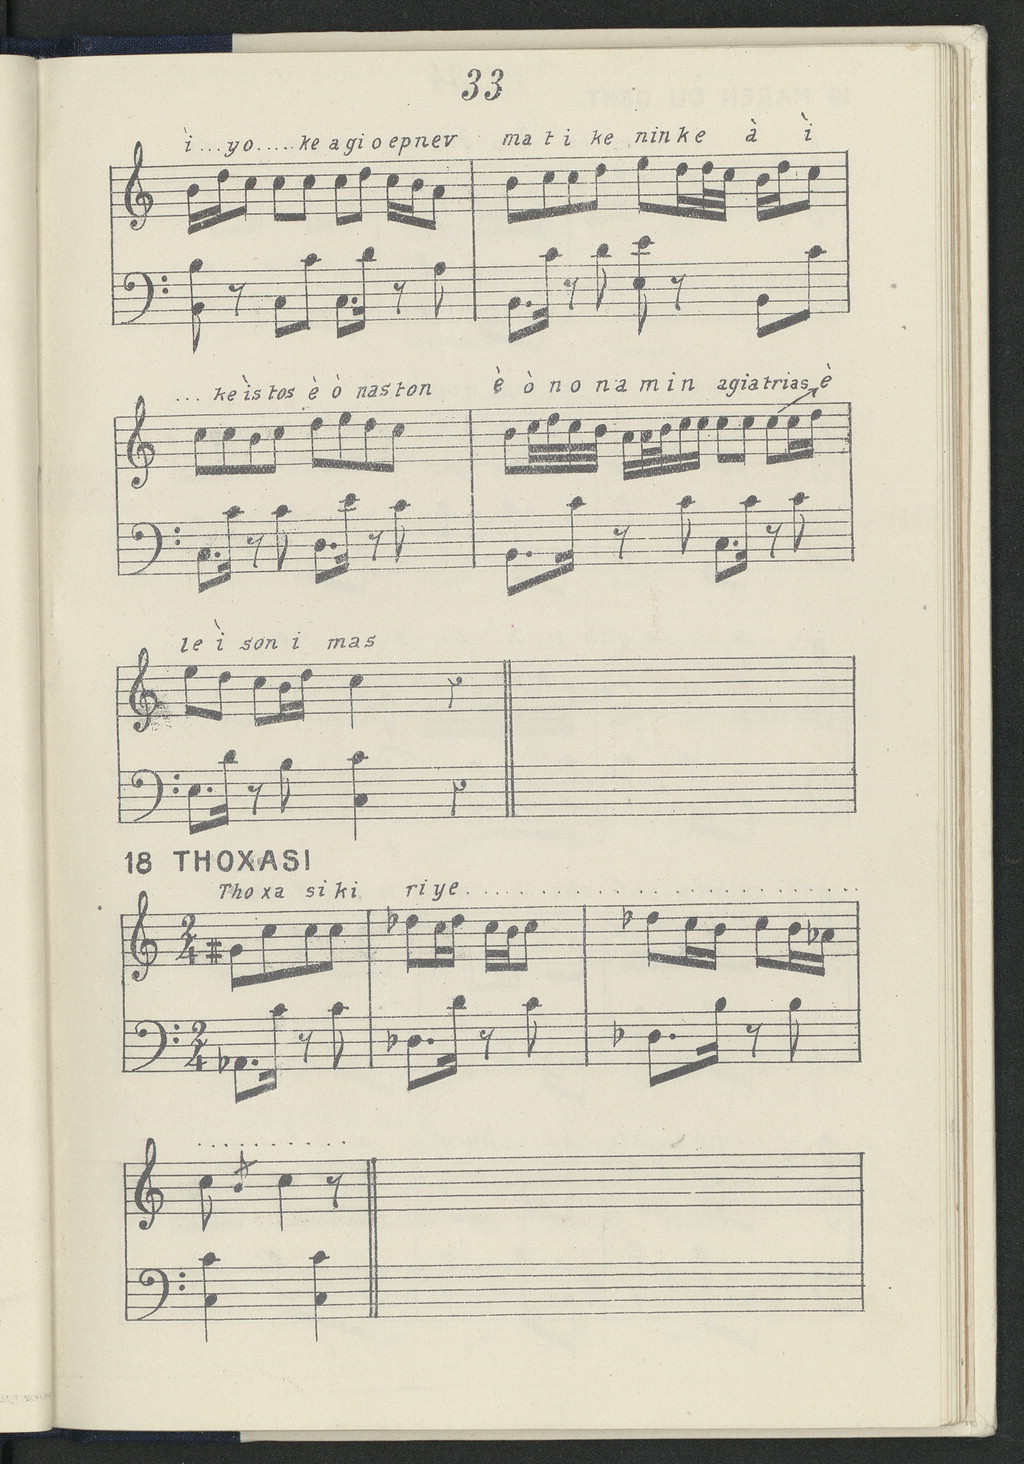 33
ì...yo.....ke agioepnev mati ke ninke à ì
... keìstos è ò naston è ò no namin agiatrias è
le ì son i mas
18 THOXASI
Thoxa siki riye......................
..........